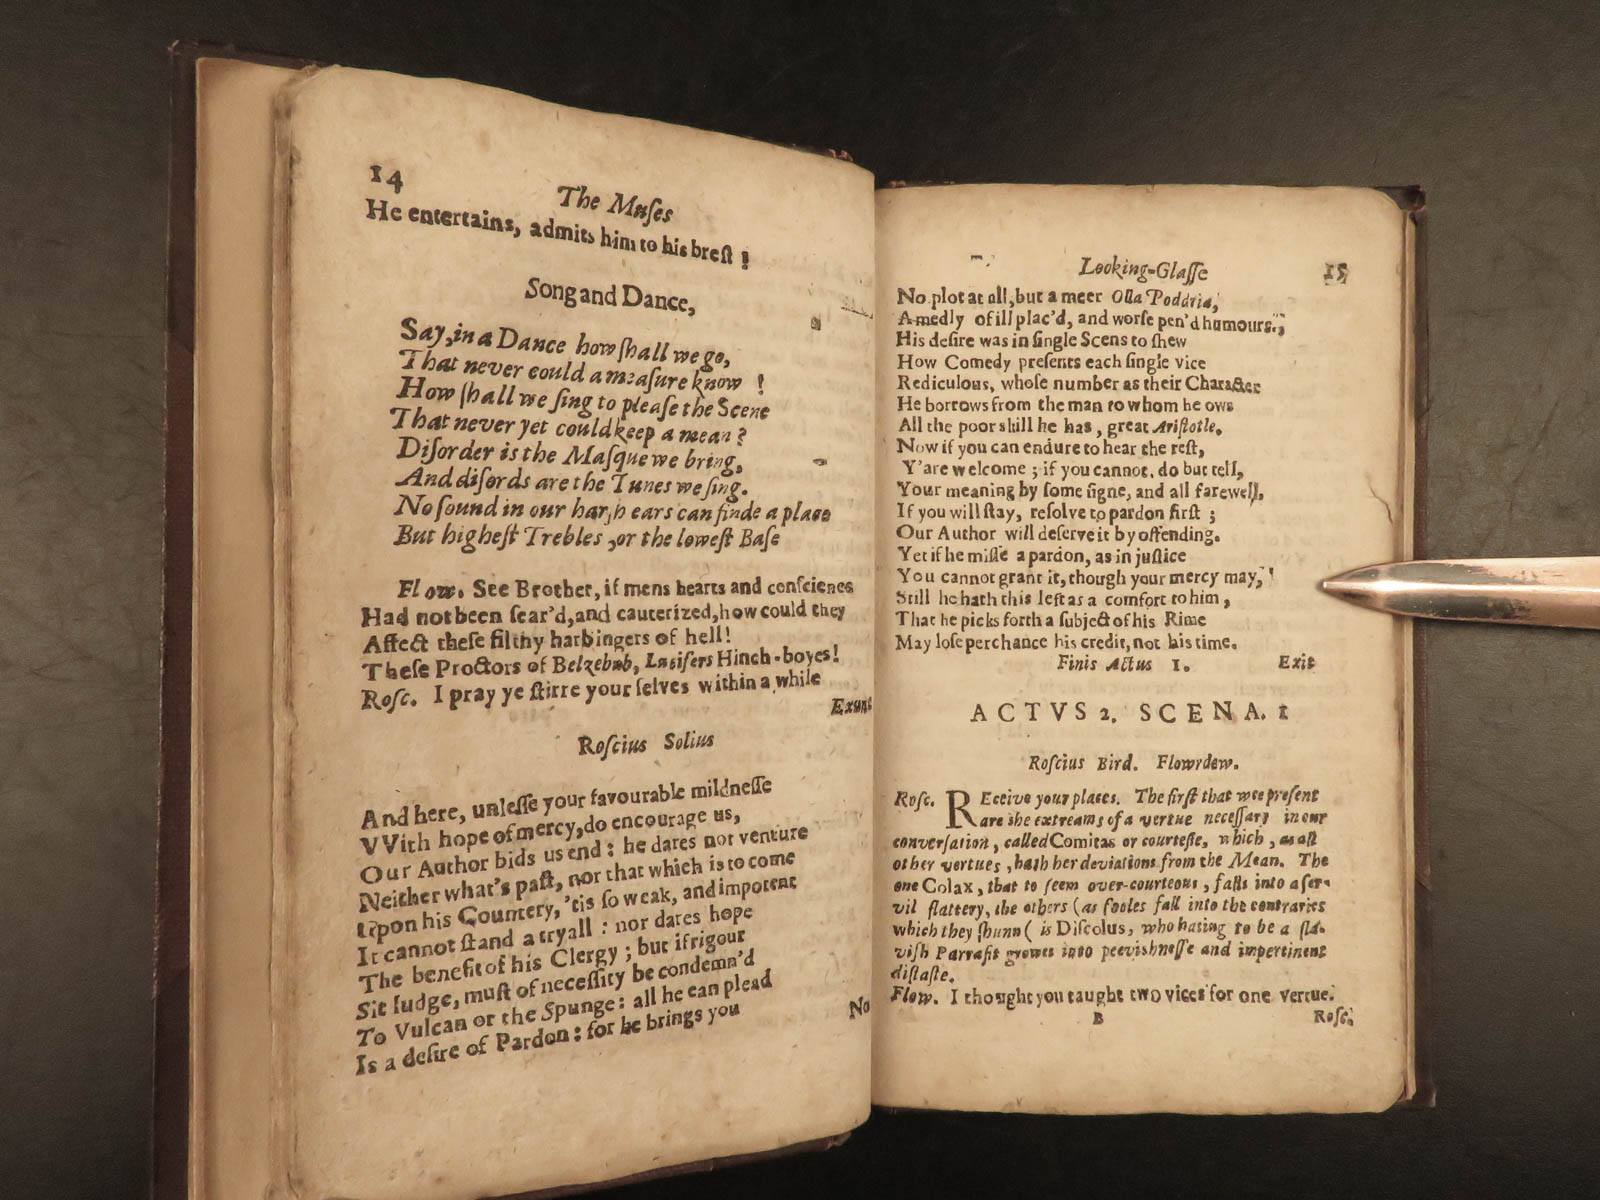 14
The Muſes
He entertains, admits him to his breſt !
Song and Dance,
Say, in a Dance how ſhall we go,
That never could a meaſure know !
How ſhall we ſing to pleaſe the Scene
That never yet could keep a mean ?
Diſorder is the Maſque we bring,
And diſords are the Tunes we ſing.
No ſound in our harſh ears can finde a place
But higheſt Trebles , or the loweſt Baſe
Flow. See Brother, if mens hearts and conſciences
Had not been ſear'd, and cauterized, how could they
Affect theſe filthy harbingers of hell!
Theſe Proctors of Belzebub, Lucifers Hinch-boyes!
Roſc. I pray ye ſtirre your ſelves within a while
Exunt
Roſcius Solius
And here, unleſſe your favourable mildneſſe
VVith hope of mercy, do encourage us,
Our Author bids us end : he dares not venture
Neither what's paſt, nor that which is to come
Upon his Countery, 'tis ſo weak, and impotent
It cannot ſtand a tryall : nor dares hope
The benefit of his Clergy ; but if rigour
Sit Iudge, muſt of neceſſity be condemn'd
To Vulcan or the Spunge : all he can plead
Is a deſire of Pardon : for he brings you
No
Looking-Glaſſe
15
No plot at all, but a meer Olla Poddria,
A medly of ill plac'd, and worſe pen'd humours.
His deſire was in ſingle Scens to ſhew
How Comedy preſents each ſingle vice
Rediculous, whoſe number as their Character
He borrows from the man to whom he ows
All the poor skill he has , great Ariſtotle.
Now if you can endure to hear the reſt,
Y'are welcome ; if you cannot, do but tell,
Your meaning by ſome ſigne, and all farewell,
If you will ſtay, reſolve to pardon firſt ;
Our Author will deſerve it by offending.
Yet if he miſſe a pardon, as in juſtice
You cannot grant it, though your mercy may,
Still he hath this left as a comfort to him ,
That he picks forth a ſubject of his Rime
May loſe perchance his credit, not his time.
Finis Actus 1. Exit
ACTVS 2. SCENA. 1
Roſcius Bird. Flowrdew.
Roſc. REceive your places. The firſt that wee preſent
are the extreams of a vertue neceſſary in our
converſation, called Comitas or courteſie, which , as all
other vertues , hath her deviations from the Mean. The
one Colax , that to ſeem over-courteous , falls into a ſer-
vil flattery, the others (as fooles fall into the contraries
which they ſhunn( is Diſcolus, who hating to be a ſla-
viſh Parraſit growes into peeviſhneſſe and impertinent
diſtaſte.
Flow. I thought you taught two vices for one vertue.
B
Roſc.